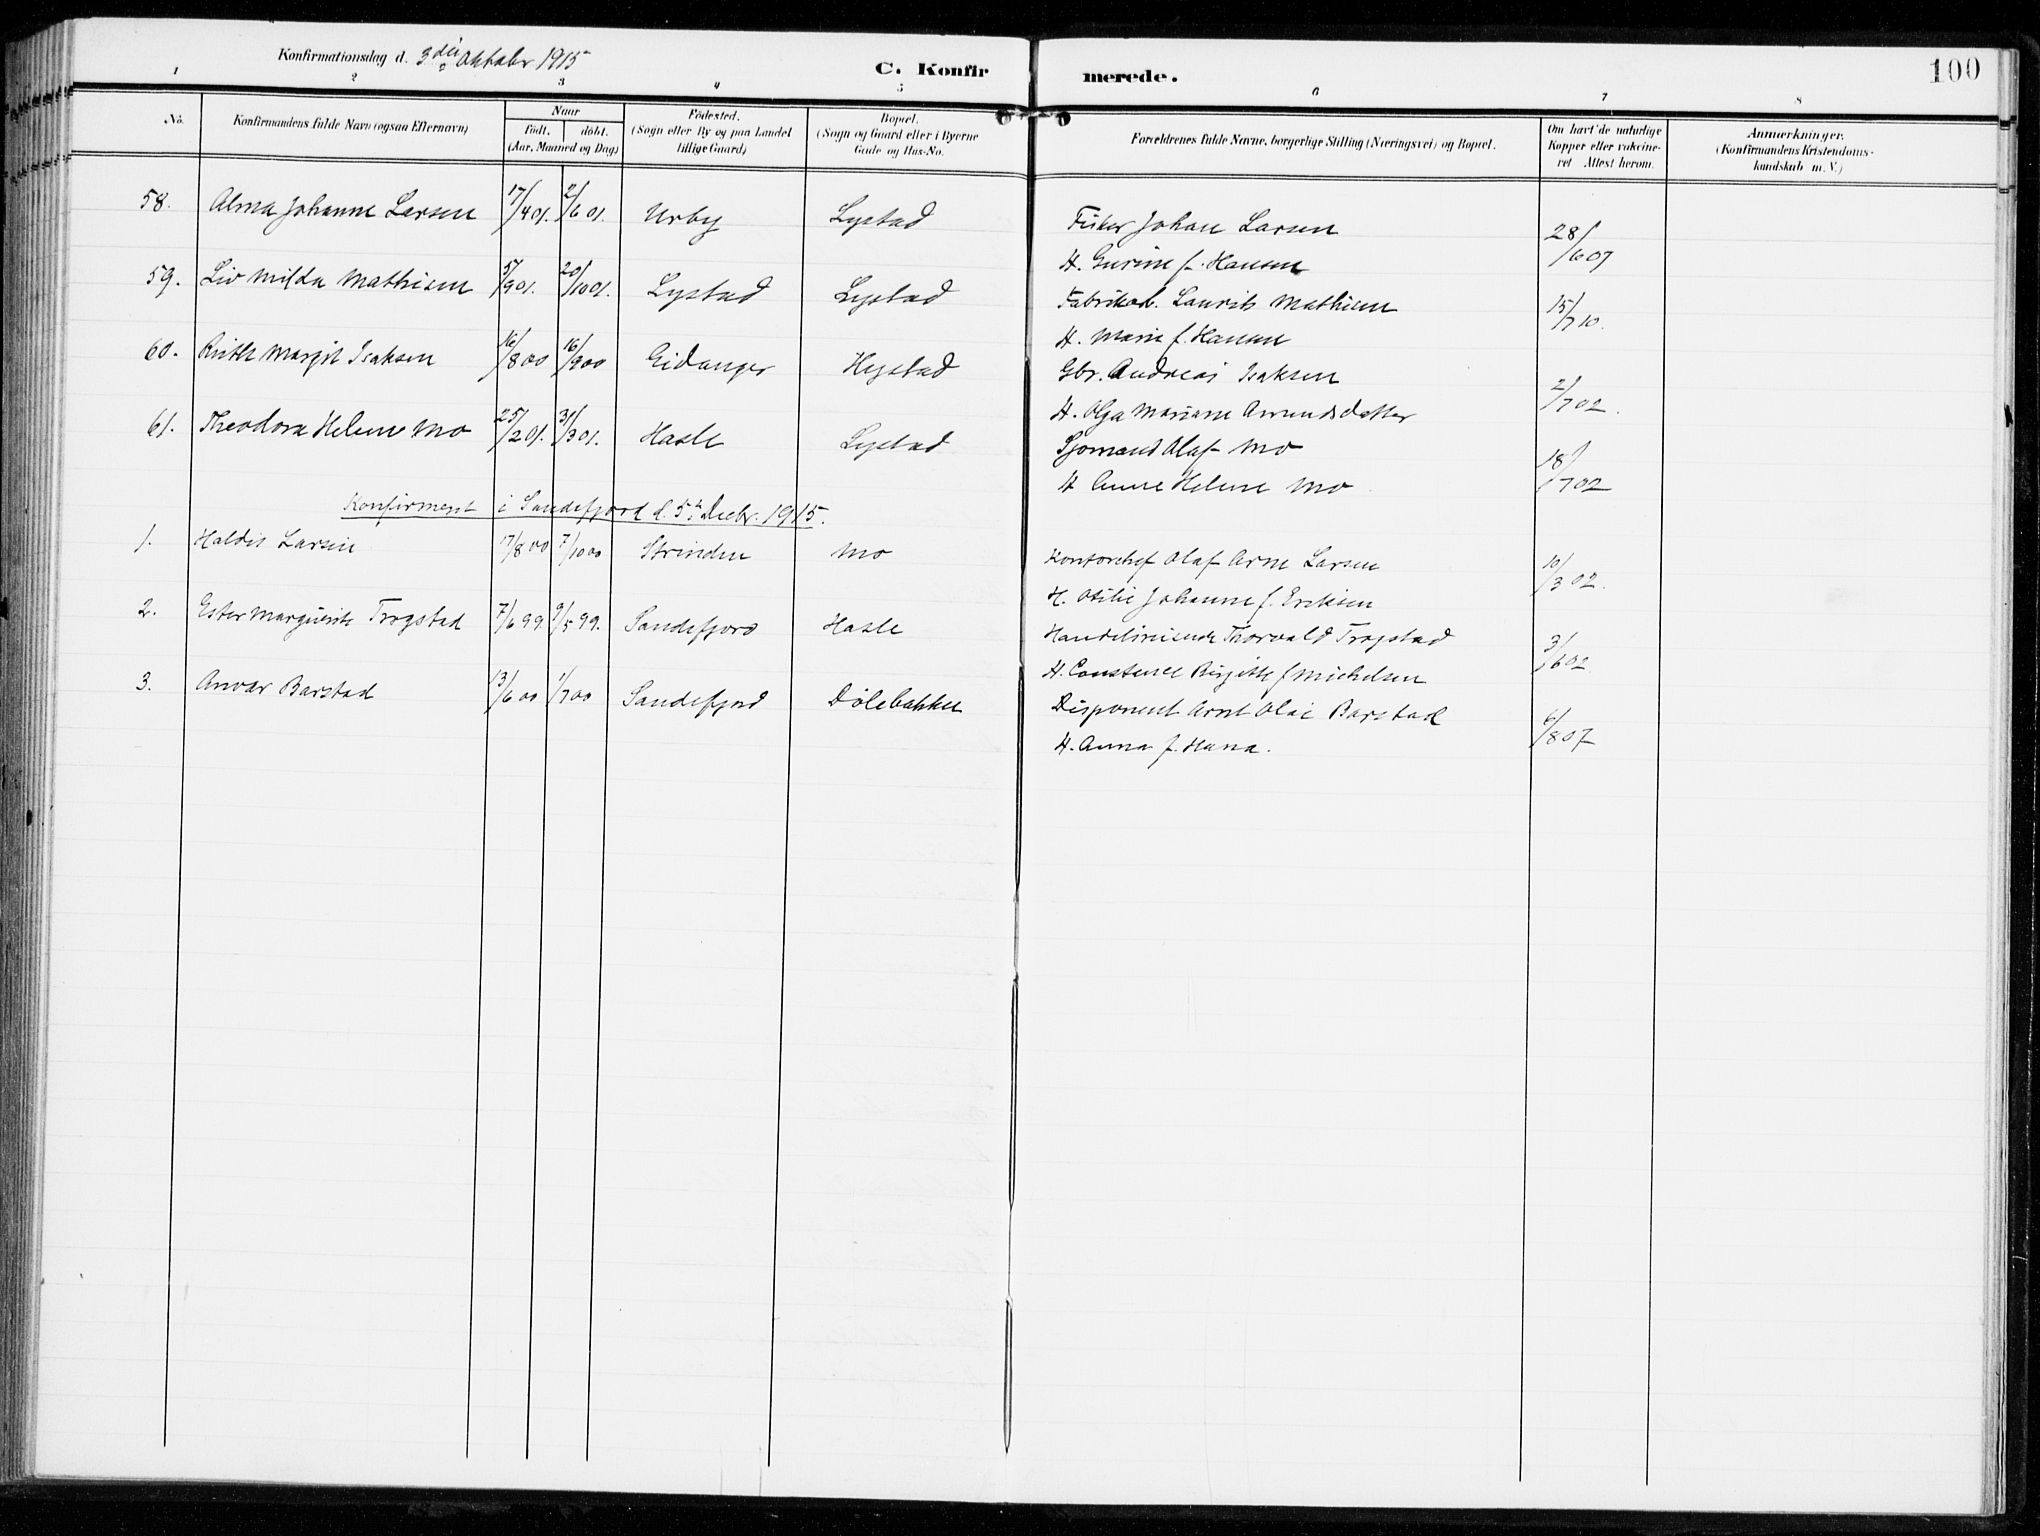 Konfirmationsdag d. 3die Oktober 1915
C. Konfirmerede.
100
1 2 3 4 5 6 7 8
No.
Konfirmandens fulde Navn (ogsaa Efternavn)
Naar
født. døbt.
(Aar, Maaned og Dag)
Fødested.
(Sogn eller By og paa Landet
tillige Gaard)
Bopæl.
(Sogn og Gaard eller i Byerne
Gade og Hus-No.
Forældrenes fulde Navne, borgerlige Stilling (Næringsvei) og Bopæl.
Om havt de naturlige
Kopper eller vakcine-
ret Attest herom.
Anmærkninger.
(Konfirmandens Kristendoms-
kundskab m. V.)
58. Alma Johanne Larsen 17/4 01. 2/6 01. Urby Lystad Fisker Johan Larsen 28/6 07
H. Gurine f. Hansen
59. Liv Milda Mathisen 5/9 01. 20/10 01. Lystad Lystad Fabrikarb. Laurits Mathisen 15/7 10.
H. Marie f. Hansen
60. Ruth Margit Isaksen 16/8 00 16/9 00 Eidanger Hystad Gbr. Andreas Isaksen 2/7 02.
H. Olga Mariane Amundsdatter
61. Theodora Helene Mo 25/2 01. 31/3 01. Hasle Lystad Sjømand Olaf Mo 18/7 02
H Anne Helene Mo
Konfirmert i Sandefjord d. 5te Decbr. 1915.
1. Haldis Larsen 17/8 00 7/10 00 Strinden Mo Kontorchef Olaf Arne Larsen 10/3 02.
H. Otilie Johanne f. Eriksen
2. Ester Marguerite Trogstad 7/6 99 9/5 99. Sandefjord Hasle Handelsreisende Thorvald Trogstad 3/6 02
H. Constance Birgitte f Michelsen
3. Anvar Barstad 13/6 00 1/7 00 Sandefjord Dølebakken Disponent Arnt Olai Barstad 6/8 07
H. Anna f. Hana.